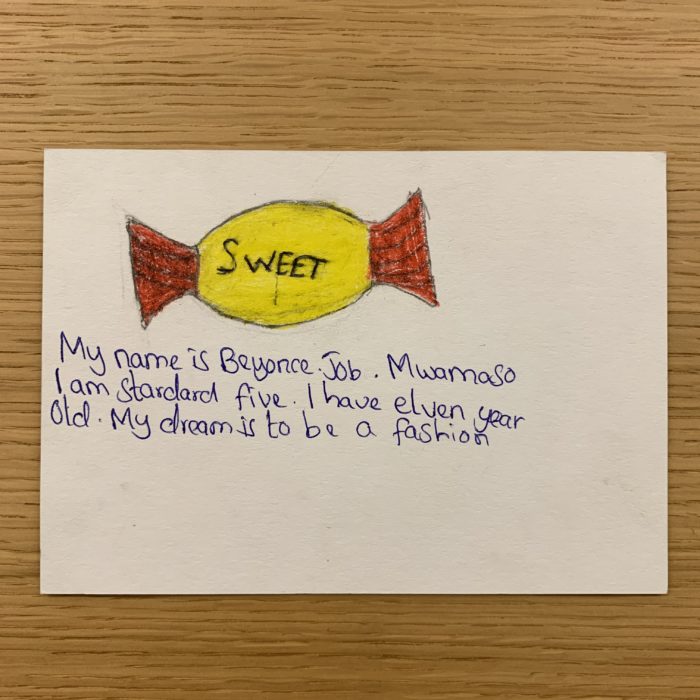 SWEET
My name is Beyonce. Job. Mwamaso
I am stardard five. I have elven year
Old. My dream is to be a fashion